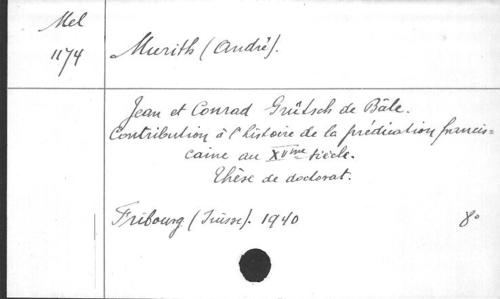 Mel
1174
Murith (André).
Jean et Conrad Grütsch de Bâle.
Contribution à l'histoire de la prédication francis=
caine au XVme siècle.
Thèse de doctorat.
Fribourg (Suisse). 1940
8°